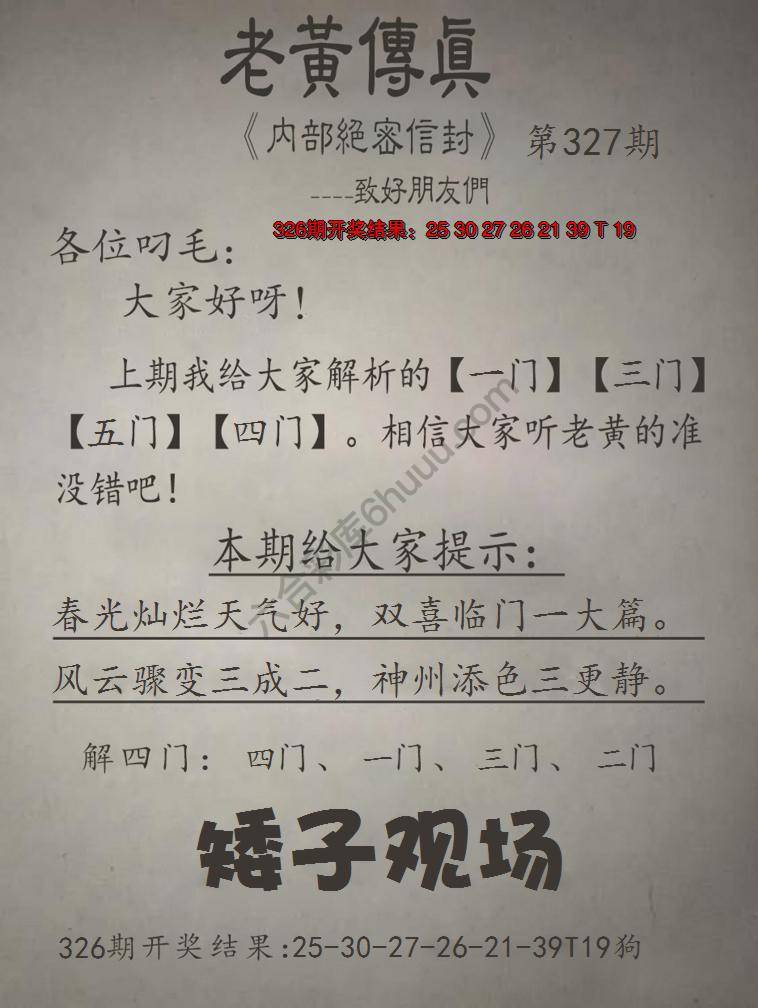 老黃傳眞
《内部絕密信封》 第327期
----致好朋友們
326期开奖结果：25 30 27 26 21 39 T 19
各位叼毛：
大家好呀！
上期我给大家解析的【一门】【三门】
【五门】【四门】。相信大家听老黄的准
没错吧！
本期给大家提示：
春光灿烂天气好，双喜临门一大篇。
风云骤变三成二，神州添色三更静。
解四门：四门、一门、三门、二门
矮子观场
326期开奖结果:25-30-27-26-21-39T19狗
六合彩库6huuu.com